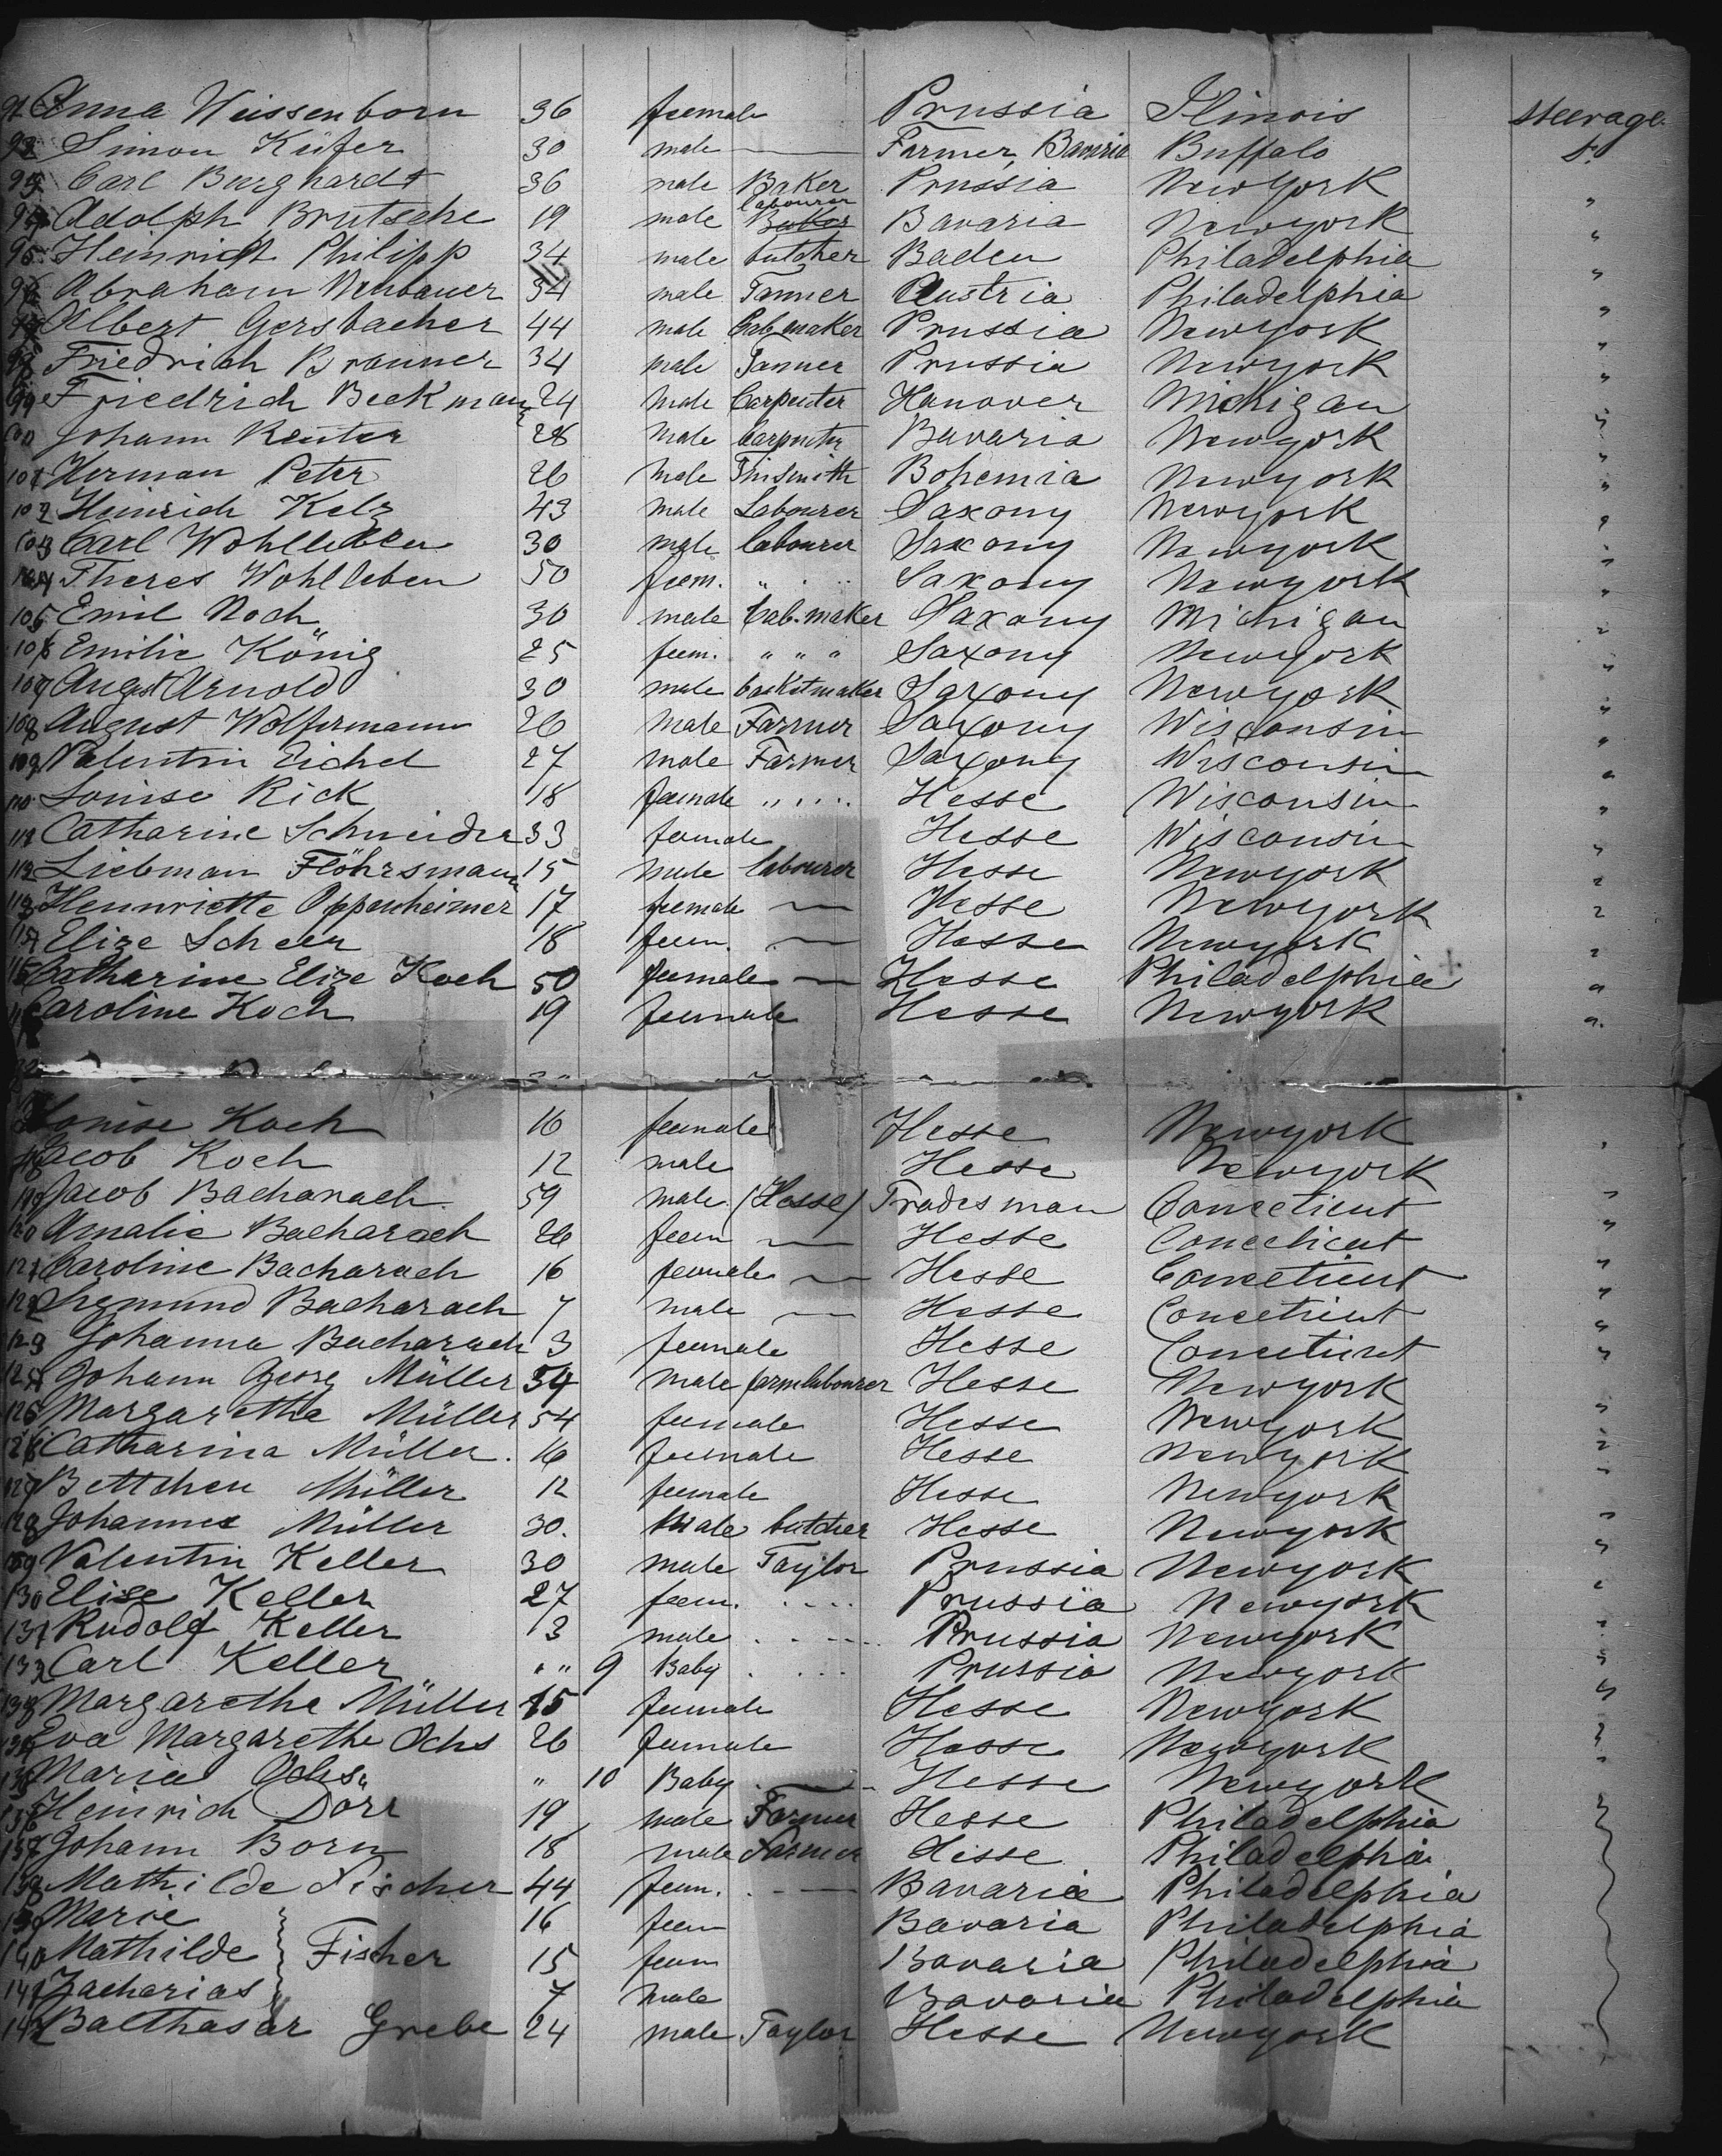 91 Anna Weissenborn 36 feemale Prussia Ilinois steerage
92 Simon Küfer 30 male — Farmer, Bavaria Buffalo
93 Carl Burghardt 36 male Baker Prussia Newyork "
94 Adolph Brutsche 19 male labourer Bavaria Newyork "
95. Heinrich Philipp 34 male butcher Baden Philadelphia "
96 Abraham Neubauer 34 male Tanner Austria Philadelphia "
97 Albert Gersbacher 44 male Cab maker Prussia Newyork "
98 Friedrich Bronner 34 male Tanner Prussia Newyork "
99 Friedrich Beckmann 24 male Carpenter Hanover Michigan "
100 Johann Reuter 28 male Carpenter Bavaria Newyork "
101 Herman Peter 26 male Tinsmith Bohemia Newyork "
102 Heinrich Kelz 43 male Labourer Saxony Newyork "
103 Carl Wohlleben 30 male labourer Saxony Newyork "
104 Theres Wohlleben 50 feem. " " Saxony Newyork "
105 Emil Noch 30 male Cab. maker Saxony Michigan "
106 Emilie König 25 feem. " " " Saxony Newyork "
107 August Arnold 30 male basketmaker Saxony Newyork "
108 August Wolfermann 26 male Farmer Saxony Wisconsin "
109 Valentin Eichel 27 male Farmer Saxony Wisconsin "
110. Louise Rick 18 feemale " " " Hesse Wisconsin "
111 Catharine Schneider 33 female Hesse Wisconsin "
112 Liebman Flöhrsmann 15 male labourer Hesse Newyork "
113 Hennriette Oppenheimer 17 feemale — Hesse Newyork "
114 Elize Scheer 18 feem. — Hesse Newyork "
115 Catharine Elize Koch 50 feemale — Hesse Philadelphia "
116 Caroline Koch 19 feemale Hesse Newyork "
Louise Koch 16 feemale Hesse Newyork
118 Jacob Koch 12 male Hesse Newyork "
119 Jacob Bacharach 59 male (Hesse) Tradesman Conecticut "
120 Amalie Bacharach 26 feem — Hesse Conecticut "
121 Caroline Bacharach 16 feemale — Hesse Conecticut "
122 Siegmund Bacharach 7 male — Hesse Conecticut "
123 Johanna Bacharach 3 feemale Hesse Conecticut "
124 Johann Georg Müller 54 male farmlabourer Hesse Newyork "
125 Margaretha Müller 54 feemale Hesse Newyork "
126 Catharina Müller. 16 feemale Hesse Newyork "
127 Bettchen Müller 12 feemale Hesse Newyork "
128 Johannes Müller 30. Male butcher Hesse Newyork "
129 Valentin Keller 30 male Taylor Prussia Newyork "
130 Elise Keller 27 feem. . . . . Prussia Newyork "
131 Rudolf Keller 3 male . . . . Prussia Newyork "
132 Carl Keller " " 9 Baby . . . Prussia Newyork "
133 Margarethe Müller 15 feemale Hesse Newyork "
134 Eva Margarethe Ochs 26 feemale Hesse Newyork "
135 Maria Ochs " 10 Baby — Hesse Newyork "
136 Heinrich Dörr 19 male Farmer Hesse Philadelphia
137 Johann Born 18 male Farmer Hesse Philadelphia
138 Mathilde Fischer 44 feem. . — Bavaria Philadelphia
139 Marie 16 feem Bavaria Philadelphia
140 Mathilde } Fischer 15 feem Bavaria Philadelphia
141 Zacharias 7 male Bavaria Philadelphia
142 Balthasar Grebe 24 male Taylor Hesse Newyork